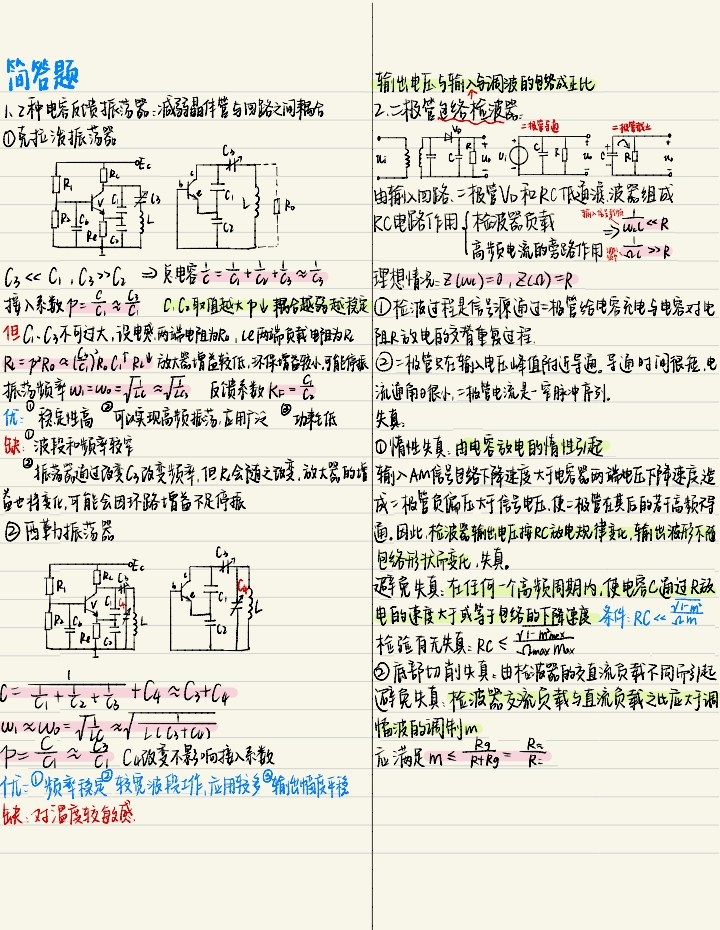 简答题
1. 2种电容反馈振荡器:减弱晶体管与回路之间耦合
①克拉泼振荡器
C₃ << C₁, C₃ >> C₂ ⇒ 总电容 1/C = 1/C₁ + 1/C₂ + 1/C₃ ≈ 1/C₃
接入系数 p = C/C₁ ≈ C₃/C₁ C₁C₂取值越大 p↓ 耦合越弱 越稳定
但 C₁、C₃不可过大,设电感两端电阻为R₀, ce两端负载电阻为R
振荡频率 ω₁ = ω₀ = √1/LC ≈ √1/LC₃ 反馈系数 K_F = C₁/C₂
优:①稳定性高 ②可以实现高频振荡,应用广泛
缺:①波段和频率较窄
②振荡器通过改变C₃改变频率,但R会随之改变,放大器的增
益也将变化,可能会因环路增益不足停振
②西勒振荡器
C = 1/(1/C₁ + 1/C₂ + 1/C₃) + C₄ ≈ C₃ + C₄
ω₁ ≈ ω₀ = √1/LC ≈ √1/L(C₃+C₄)
p = C/C₁ ≈ C₃/C₁ C₄改变不影响接入系数
优:①频率稳定 ②较宽波段工作,应用较多 ③输出幅度平稳
缺:对温度较敏感.
输出电压与输入高调波的包络成正比
2. 二极管包络检波器:
二极管导通 二极管截止
由输入回路、二极管V_D和RC低通滤波器组成
RC电路作用 { 检波器负载 ⇒ 1/ω₀C << R
高频电流的旁路作用 1/ΩC >> R
理想情况:Z(ωc)=0, Z(Ω)=R
①检波过程是信号源通过二极管给电容充电与电容对电
阻R放电的交替重复过程.
②二极管只在输入电压峰值附近导通.导通时间很短,电
流通角θ很小,二极管电流是一窄脉冲序列.
失真:
①惰性失真:由电容放电的惰性引起
输入AM信号包络下降速度大于电容器两端电压下降速度,造
成二极管负偏压大于信号电压,使二极管在其后的若干高频不导
通。因此,检波器输出电压按RC放电规律变化,输出波形不随
包络形状而变化,失真。
避免失真:在任何一个高频周期内,使电容C通过R放
电的速度大于或等于包络的下降速度 条件:RC << √1-m²/Ωm
检验有无失真:RC ≤ √1-m²max/Ωmax Mmax
②底部切削失真:由检波器的交直流负载不同所引起
避免失真:检波器交流负载与直流负载之比应大于调
幅波的调制m
应满足 m ≤ Rg/(R+Rg) = R~/R=